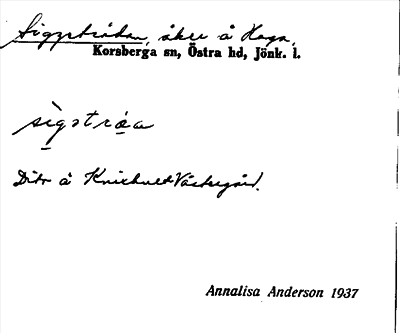 Siggstrådan, åker å Haga,
Korsberga sn, Östra hd, Jönk. l.
sìgstra̱a
Dito å Knixhult Västergård.
Annalisa Anderson 1937